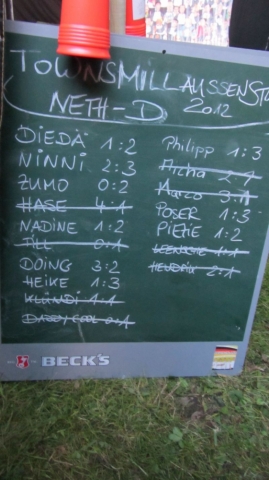 TOWNSMILLAUSSENST
NETH-D 2012
DIEDÄ 1:2
NINNI 2:3
ZUMO 0:2
HASE 4:1
NADINE 1:2
TILL 0:1
DOING 3:2
HEIKE 1:3
KLÜNDI 1:1
DADDY COOL 0:1
Philipp 1:3
Micha 2:1
Marco 3:1
POSER 1:3
PIETIE 1:2
1:1
HENDRIK 2:1
BECK'S